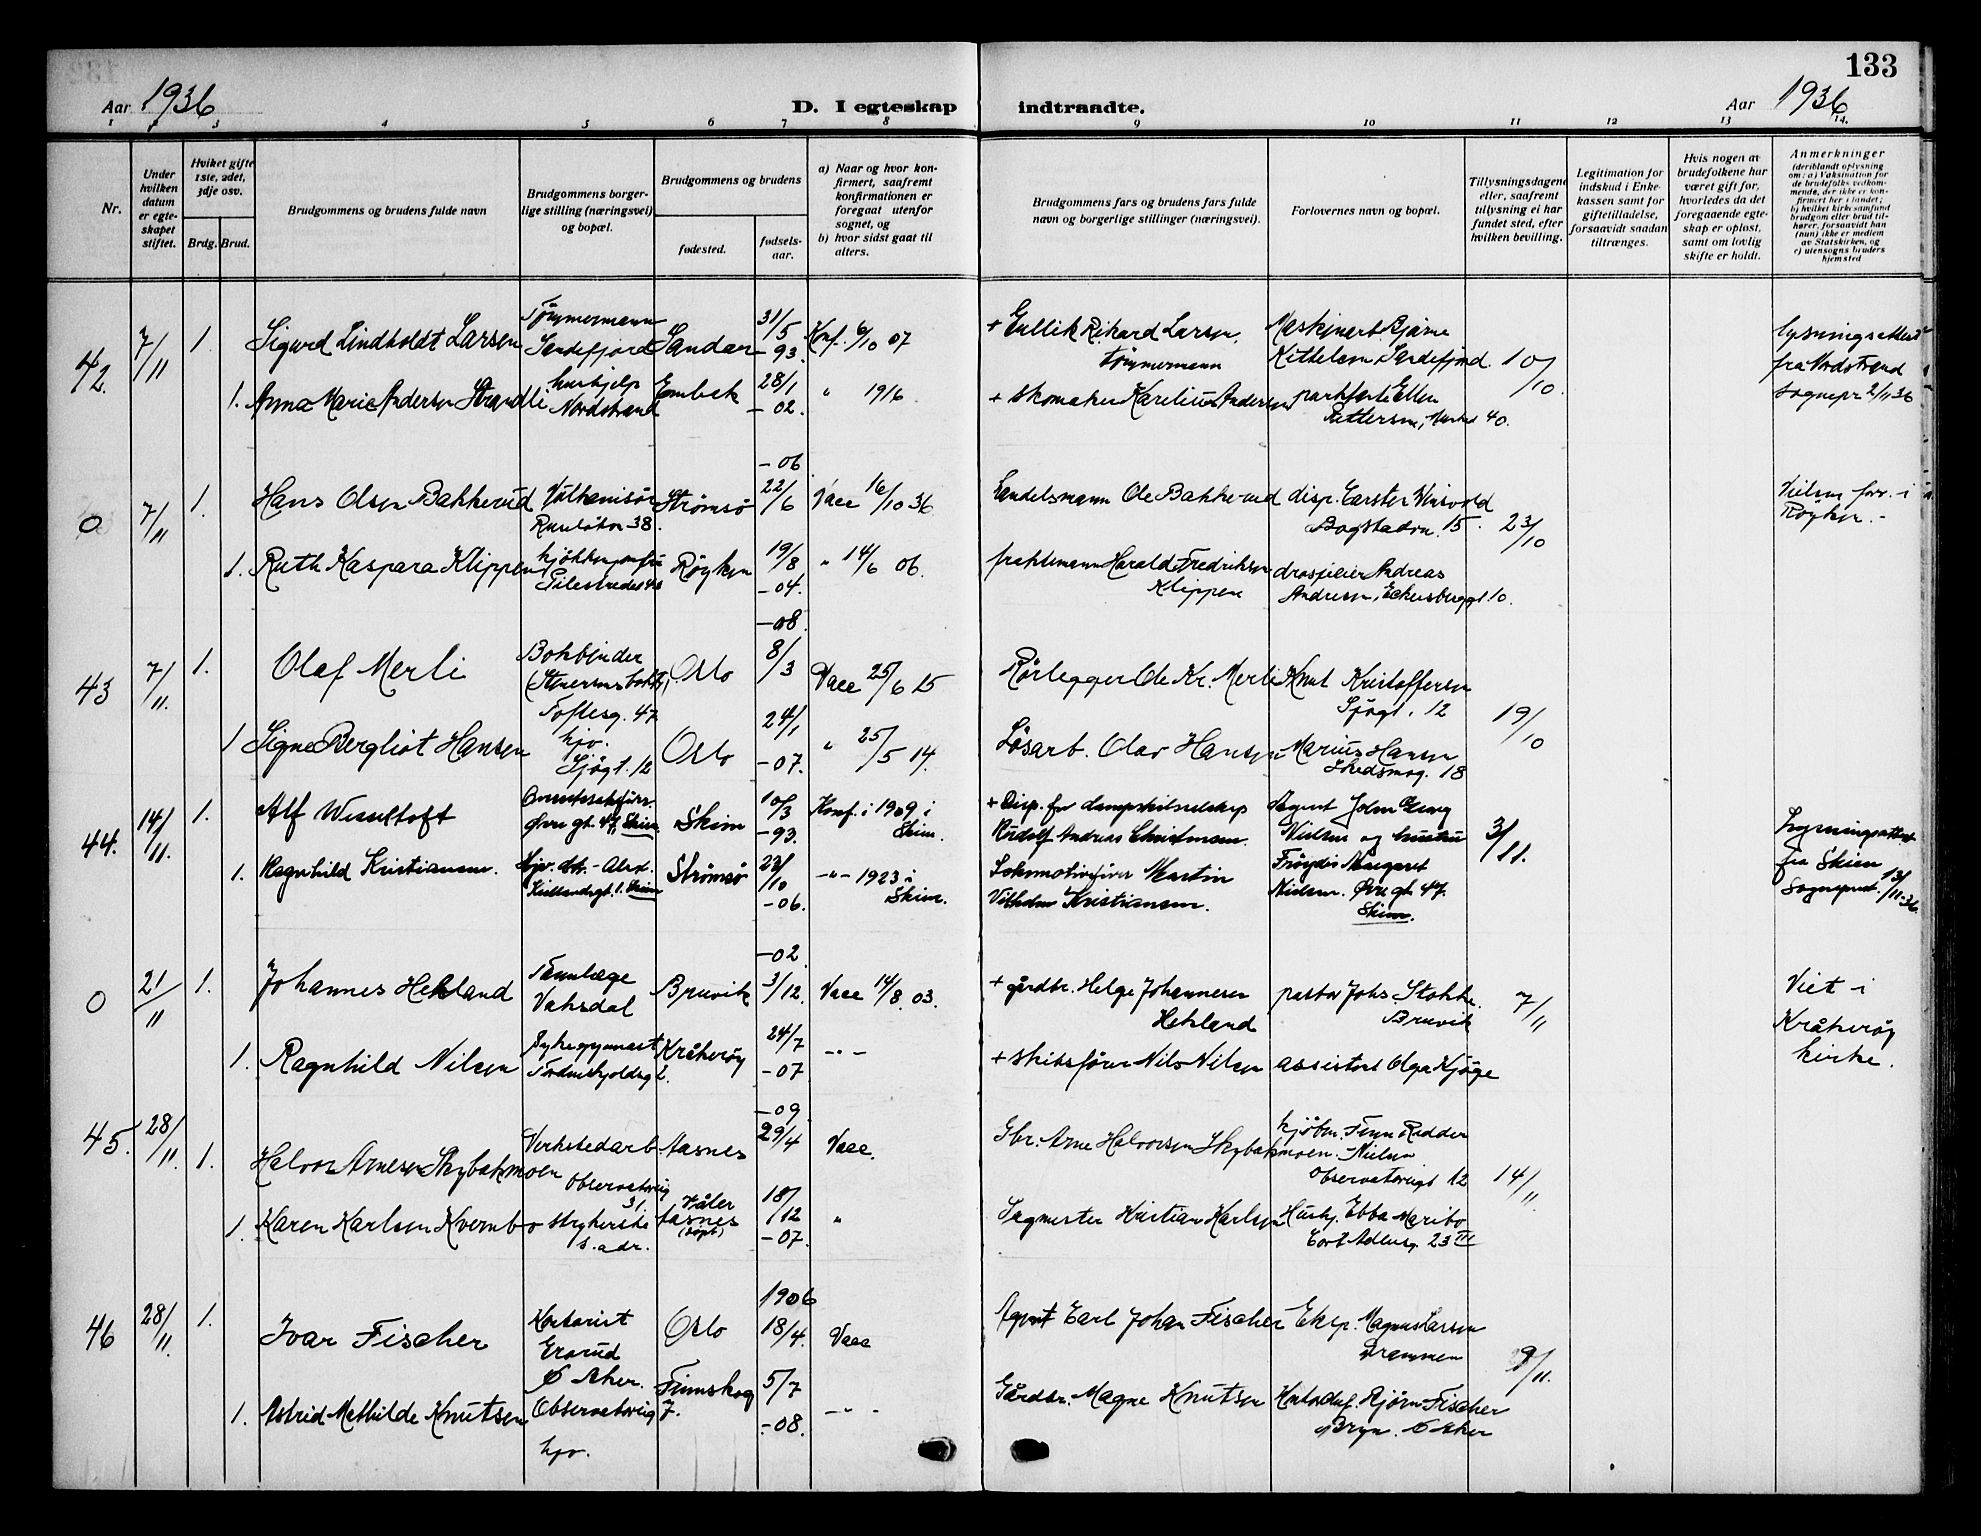 133
Aar 1936
D. I egteskap indtraadte.
Aar 1936
1 2 3 4 5 6 7 8 9 10 11 12 13 14.
Nr.
Under hvilken datum er egteskapet stiftet.
Hvilket gifte 1ste, 2det, 3dje osv.
Brdg. Brud.
Brudgommens og brudens fulde navn
Brudgommens borgerlige stilling (næringsvei) og bopæl.
Brudgommens og brudens
fødested.
fødselsaar.
a) Naar og hvor konfirmert, saafremt konfirmationen er foregaat utenfor sognet, og
b) hvor sidst gaat til alters.
Brudgommens fars og brudens fars fulde navn og borgerlige stillinger (næringsvei).
Forlovernes navn og bopæl.
Tillysningsdagene eller, saafremt tillysning ei har fundet sted, efter hvilken bevilling.
Legitimation for indskud i Enkekassen samt for giftetilladelse, forsaavidt saadan tiltrænges.
Hvis nogen av brudefolkene har været gift før, hvorledes da det foregaaende egteskap er opløst, samt om lovlig skifte er holdt.
Anmerkninger
(deriblandt oplysning om: a) Vaksination for de brudefolks vedkommende, der ikke er konfirmert her i landet; b) hvilket kirkesamfund brudgom eller brud tilhører, forsaavidt han (hun) ikke er medlem av Statskirken, og c) utensogns bruders hjemsted
42. 7/11 1. Sigurd Lindholdt Larsen
Tömmermann Sandefjord
Sandar
31/5 - 93.
Konf. 6/10 07
+ Gullik Rikard Larsen, tömmermann
Maskinarb. Bjarne Kittelsen Sandefjord.
10/10.
lysningsattest fra Nordstrand sognepr 2/11 36
1. Anna Marie Andersen Strandli
hushjelp Nordstrand
28/1 - 02.
" 1916.
+ skomaker Karelius Andersen
0 7/11 1. Hans Olsen Bakkerud
Strømsö
- 06 22/6
Vace 16/10 36
Ole Bakkerud
disp. Carsten
15.
23/10
Röyken.
1. Ruth Kaspara Klippen
Pilestredet
Røyken
19/8 - 04.
" 14/6 06.
fraktemann Harald Fredriksen Klippen
Andreas Andresen, Eckersbergsgt 10.
43 7/11. 1. Olaf Merli
Bokbinder
Toftesg. 47
Oslo
- 08 8/3
Vace 25/6 15
Rørlegger Ole Kr. Merli
Knut Kristoffersen Sjögt. 12
19/10
1 Signe Bergliot Hansen
hjv. Sjögt. 12
Oslo
24/1 - 07.
" 25/5 14.
Løsarb. Olav Hansen
Marius Hansen Skedsmog. 18
44. 14/11. 1. Alf Wesseltoft
Øvre gt. 47, Skien
Skien
10/3 - 93.
Konf. i 1909 i Skien.
+ Disp. for dampskibsselskap Rudolf Andreas
Agent John Georg Nielsen og hustru Frøydis Margaret Nielsen. Øvre gt. 47. Skien.
3/11.
Lysningsattest fra Skien Sogneprest. 13/11-36.
1. Ragnhild Kristiansen.
Strømsø
23/10 - 06.
-"- 1923 i Skien.
Lokomotivfører Martin Vilhelm Kristiansen.
0 21/11 1. Johannes Hekland
Tannlæge Vaksdal
Bruvik
- 02 3/12.
Vace 14/8. 03.
+ gårdbr. Helge Johannesen Hekland
pastor Johs Stokke. Bruvik
7/11
Viet i Kråkerøy kirke.
1. Ragnhild Nilsen
Sykegymnast Tordenskjoldsg 2.
Kråkerøy
24/7 - 07
-"-
+ skibsfører Nils Nilsen
assistent Olga Kjöge
45. 28/11. 1. Halvor Arnesen Skybakmoen
Verkstedarb. Observatoriig 31.
Aasnes
- 09 29/4
Vace.
Gbr. Arne Halvorsen Skybakmoen.
kjøbm. Finn Rödder Nielsen Observatoriegt 12
14/11
1. Karen Karlsen Kvernbo
strykerske s. adr.
Våler Aasnes (döpt)
18/12 - 07.
"
Sagmester Kristian Karlsen
Hushj. Ebba Maribo Cort Adlersg. 23 III
46 28/11. 1. Ivar Fischer
Kontorist Ø Aker.
Oslo
1906 18/4.
Vace
Agent Carl Johan Fischer
Eksp. Magnus Larsen Drammen
9/11.
1. Astrid Mathilde Knutsen
Observatoriig 7. hjv.
Finnskog
5/7 - 08.
-"-
Gårdbr. Magne Knutsen
Bjørn Fischer Bryn. Ø Aker